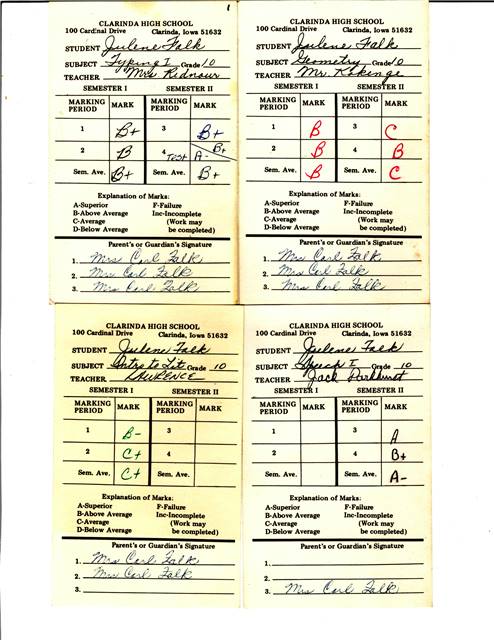 CLARINDA HIGH SCHOOL
100 Cardinal Drive Clarinda, Iowa 51632
STUDENT Julene Falk
SUBJECT Typing I Grade 10
TEACHER Mrs Ridnour
SEMESTER I SEMESTER II
MARKING PERIOD MARK MARKING PERIOD MARK
1 B+ 3 B+
2 B 4 Test A- B+
Sem. Ave. B+ Sem. Ave. B+
Explanation of Marks:
A-Superior F-Failure
B-Above Average Inc-Incomplete
C-Average (Work may
D-Below Average be completed)
Parent's or Guardian's Signature
1. Mrs Carl Falk
2. Mrs Carl Falk
3. Mrs Carl Falk
CLARINDA HIGH SCHOOL
100 Cardinal Drive Clarinda, Iowa 51632
STUDENT Julene Falk
SUBJECT Geometry Grade 10
TEACHER Mr. Kokinge
SEMESTER I SEMESTER II
MARKING PERIOD MARK MARKING PERIOD MARK
1 B 3 C
2 B 4 B
Sem. Ave. B Sem. Ave. C
Explanation of Marks:
A-Superior F-Failure
B-Above Average Inc-Incomplete
C-Average (Work may
D-Below Average be completed)
Parent's or Guardian's Signature
1. Mrs Carl Falk
2. Mrs Carl Falk
3. Mrs Carl Falk
CLARINDA HIGH SCHOOL
100 Cardinal Drive Clarinda, Iowa 51632
STUDENT Julene Falk
SUBJECT Intro to Lit. Grade 10
TEACHER LAWRENCE
SEMESTER I SEMESTER II
MARKING PERIOD MARK MARKING PERIOD MARK
1 B- 3
2 C+ 4
Sem. Ave. C+ Sem. Ave.
Explanation of Marks:
A-Superior F-Failure
B-Above Average Inc-Incomplete
C-Average (Work may
D-Below Average be completed)
Parent's or Guardian's Signature
1. Mrs Carl Falk
2. Mrs Carl Falk
3.
CLARINDA HIGH SCHOOL
100 Cardinal Drive Clarinda, Iowa 51632
STUDENT Julene Falk
SUBJECT Speech I Grade 10
TEACHER Jack Parkhurst
SEMESTER I SEMESTER II
MARKING PERIOD MARK MARKING PERIOD MARK
1 3 A
2 4 B+
Sem. Ave. Sem. Ave. A-
Explanation of Marks:
A-Superior F-Failure
B-Above Average Inc-Incomplete
C-Average (Work may
D-Below Average be completed)
Parent's or Guardian's Signature
1.
2.
3. Mrs Carl Falk